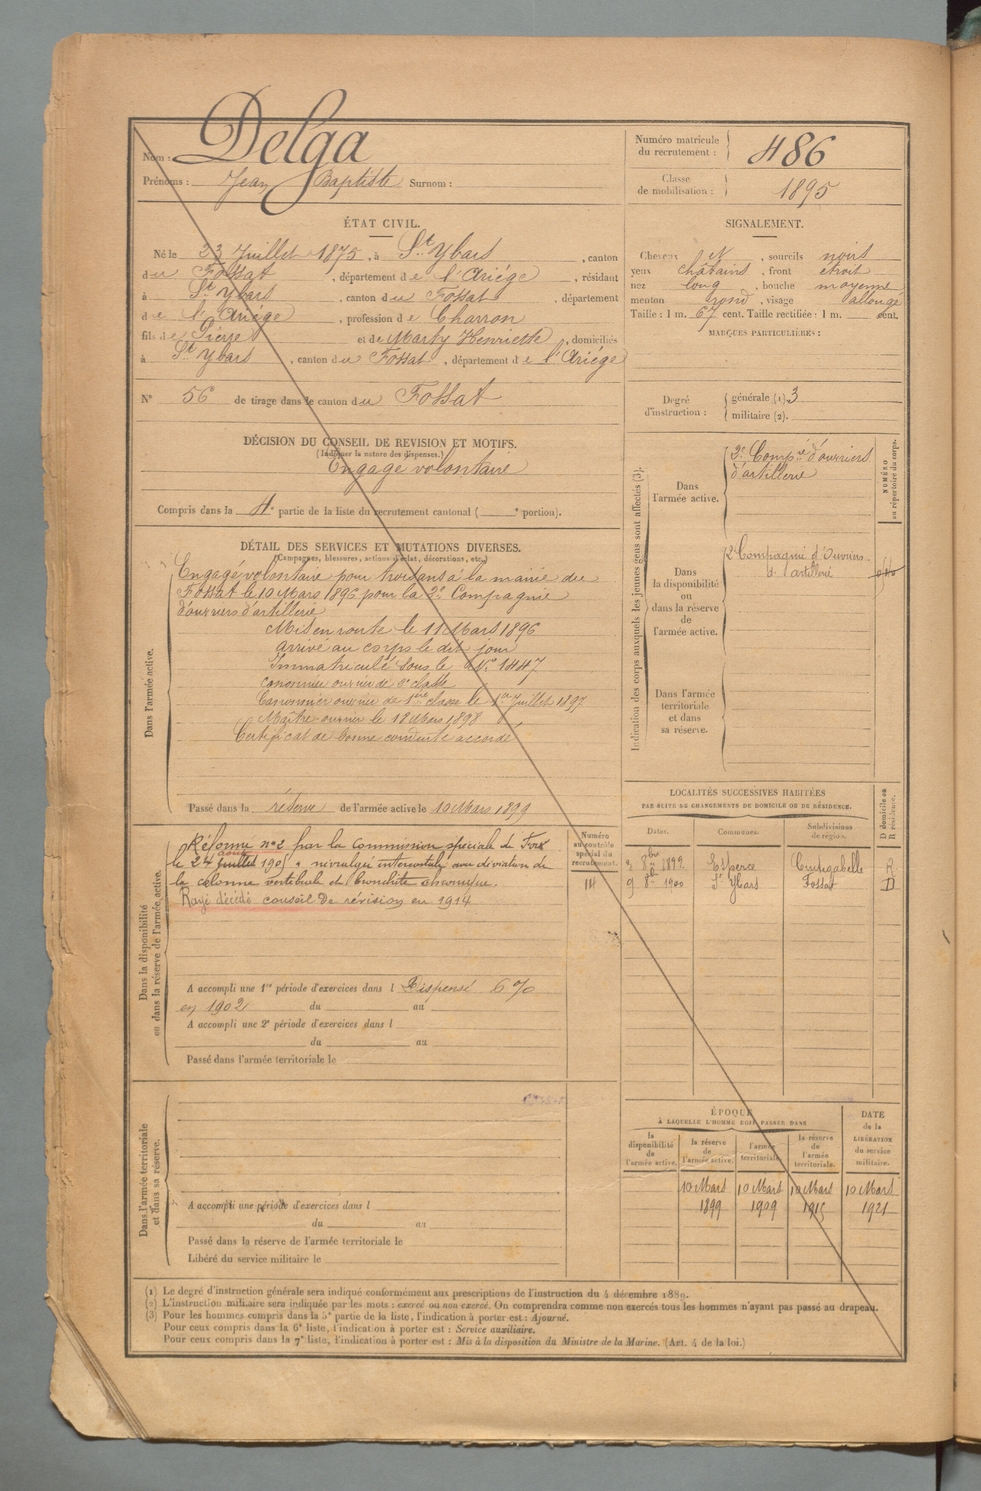 Nom : Delga
Prénoms : Jean Baptiste Surnom :
Numéro matricule
du recrutement : 486
Classe
de mobilisation : 1895
ÉTAT CIVIL.
Né le 23 Juillet 1875, à St Ybars, canton
du Fossat, département de l'Ariége, résidant
à St Ybars, canton du Fossat, département
de l'Ariége, profession de Charron
fils de Pierre et de Marty Henriette, domiciliés
à St Ybars, canton du Fossat, département de l'Ariége
N° 56 de tirage dans le canton du Fossat
SIGNALEMENT.
Cheveux et, sourcils noirs
yeux châtains, front étroit
nez long, bouche moyenne
menton rond, visage allongé
Taille : 1 m. 67 cent. Taille rectifiée : 1 m. cent.
MARQUES PARTICULIÈRES :
Degré
d'instruction :
générale (1). 3
militaire (2).
DÉCISION DU CONSEIL DE REVISION ET MOTIFS.
(Indiquer la nature des dispenses.)
Engagé volontaire
Compris dans la 4e partie de la liste du recrutement cantonal ( e portion).
DÉTAIL DES SERVICES ET MUTATIONS DIVERSES.
(Campagnes, blessures, actions d'éclat, décorations, etc.)
Dans l'armée active.
Engagé volontaire pour trois ans à la mairie du
Fossat le 10 Mars 1896 pour la 2e Compagnie
d'ouvriers d'artillerie
Mis en route le 11 Mars 1896
arrivé au corps le dit jour
Immatriculé sous le N° 1447
canonnier ouvrier de 2e classe
Canonnier ouvrier de 1ère classe le 1er Juillet 1897
Maître ouvrier le 12 Mars 1898
Certificat de bonne conduite accordé
Passé dans la réserve de l'armée active le 10 Mars 1899
Indication des corps auxquels les jeunes gens sont affectés (3).
NUMÉRO
au répertoire du corps.
Dans
l'armée active.
2e Compie d'ouvriers
d'artillerie
Dans
la disponibilité
ou
dans la réserve
de
l'armée active.
2e Compagnie d'Ouvriers
d'artillerie
Dans l'armée
territoriale
et dans
sa réserve.
LOCALITÉS SUCCESSIVES HABITÉES
PAR SUITE DE CHANGEMENTS DE DOMICILE OU DE RÉSIDENCE.
Dates. Communes. Subdivisions
de région.
D domicile ou
R résidence.
8bre 1899 Esperce Cintegabelle R
9 8bre 1900 St Ybars Fossat D
Dans la disponibilité
ou dans la réserve de l'armée active.
Numéro
au contrôle
spécial du
recrutement.
Réformé n° 2 par la Commission spéciale de Foix
le 24 Juillet août 1905 : névralgie intercostale avec déviation de
la colonne vertébrale et bronchite chronique.
Rayé décédé conseil de révision en 1914
A accompli une 1re période d'exercices dans l Dispensé 6 %
en 1902 du au
A accompli une 2e période d'exercices dans l
du au
Passé dans l'armée territoriale le
Dans l'armée territoriale
et dans sa réserve.
A accompli une période d'exercices dans l
du au
Passé dans la réserve de l'armée territoriale le
Libéré du service militaire le
ÉPOQUE
À LAQUELLE L'HOMME DOIT PASSER DANS
DATE
de la
LIBÉRATION
du service
militaire.
la
disponibilité
de
l'armée active.
la réserve
de
l'armée active.
l'armée
territoriale.
la réserve
de
l'armée
territoriale.
10 Mars 10 Mars 10 Mars 10 Mars
1899 1909 1915 1921
(1) Le degré d'instruction générale sera indiqué conformément aux prescriptions de l'instruction du 4 décembre 1889.
(2) L'instruction militaire sera indiquée par les mots : exercé ou non exercé. On comprendra comme non exercés tous les hommes n'ayant pas passé au drapeau.
(3) Pour les hommes compris dans la 5e partie de la liste, l'indication à porter est : Ajourné.
Pour ceux compris dans la 6e liste, l'indication à porter est : Service auxiliaire.
Pour ceux compris dans la 7e liste, l'indication à porter est : Mis à la disposition du Ministre de la Marine. (Art. 4 de la loi.)